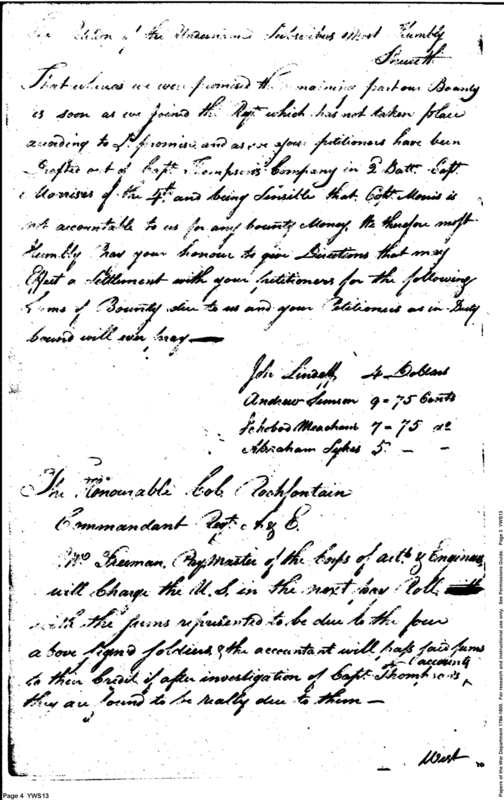 The Petition of the Undersigned Subscribers Most Humbly
Sheweth
That whereas we were promised the remaining part our Bounty
is soon as we joined the Regt. which has not taken place
according to promise and as we your petitioners have been
Drafted out of Capt. Thompson's Company in 2 Batt. Capt.
Morrises of the 4th. and being Sensible that Capt. Morris is
not accountable to us for any bounty Money. We therefore most
Humbly Pray your honour to give Directions that may
Effect a Settlement with your petitioners for the following
Sums of Bounty due to us and your Petitioners as in Duty
bound will ever pray —
Joh 4 Dollars
Andrew Simson 9 = 75 Cents
Ichobod Meacham 7 = 75 do
Abraham Sykes 5. — —
The Honourable Col. Rochfontain
Commandant Regt. A & E
Mr. Freeman, PayMaster of the Corps of Arty. & Engineers
will Charge the U. S. in the next pay Roll
with the sums represented to be due to the four
above signed soldiers, & the accountant will pass said sums
to their Credit if after investigation of Capt. Thompson's accounts
they are found to be really due to them —
West
Page 4 YWS13
Papers of the War Department 1784-1800. For research and instructional use only. See Permissions Guide. Page 3 YWS13